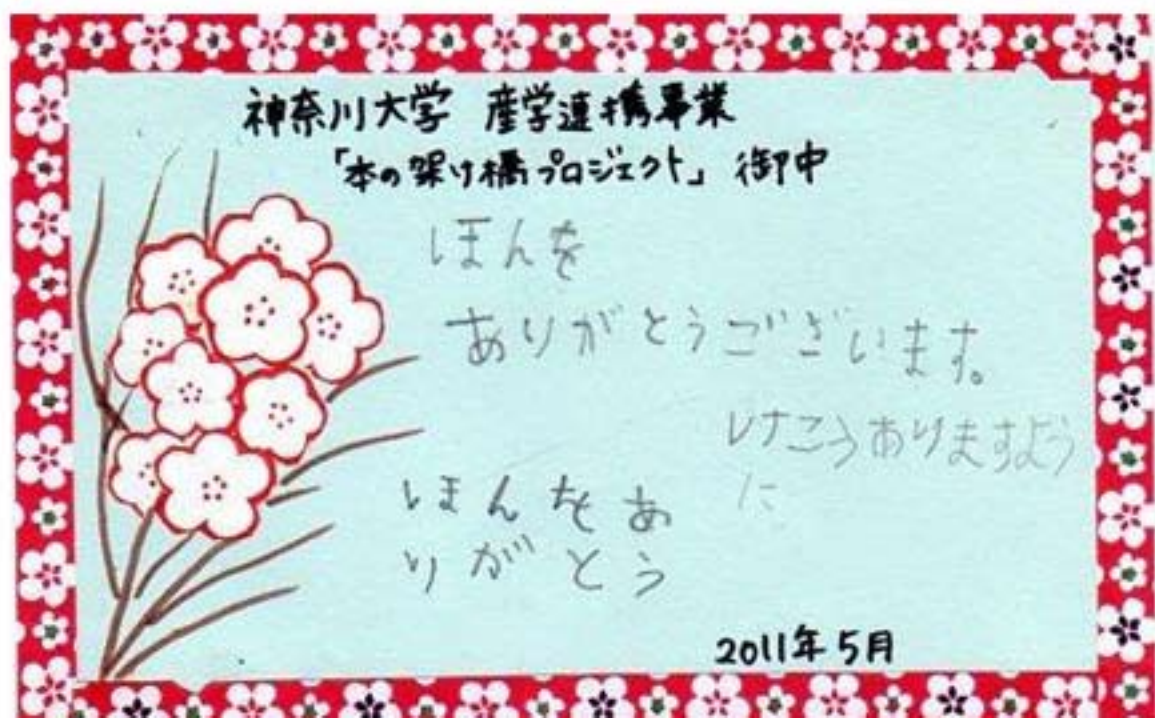 神奈川大学 産学連携事業
「本の架け橋プロジェクト」御中
ほんを
ありがとうございます。
けこうありますよう
に
ほんをあ
りがとう
2011年5月